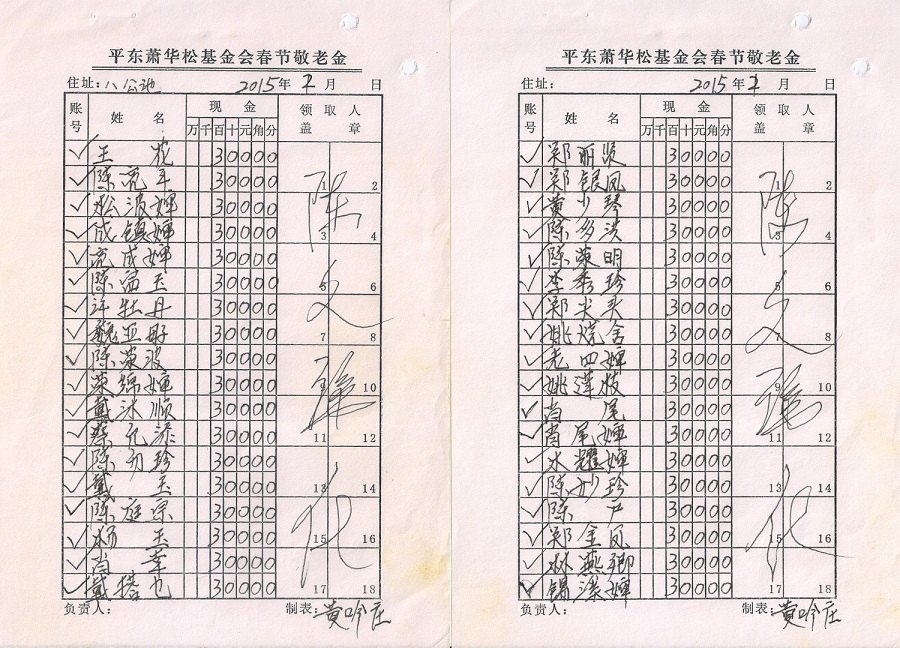 平东萧华松基金会春节敬老金
住址: 八公地 2015年 2月 日
账号 姓 名 现 金 领 取 人 盖 章
万 千 百 十 元 角 分
王 花 30000
陈 30000 1 2
30000
成镇婶 30000 3 4
成婶 30000
陈 玉 30000 5 6
许牡丹 30000
魏亚 30000 7 8
陈荣波 30000
荣锦婶 30000 10
戴冰顺 30000
蔡 30000 11 12
陈 珍 30000
戴 玉 30000 13 14
陈庭宗 30000
杨 玉 30000 15 16
肖 幸 30000
戴 30000 17 18
陈
文
化
负责人: 制表: 黄吟庄
平东萧华松基金会春节敬老金
住址: 2015年 2月 日
账号 姓 名 现 金 领 取 人 盖 章
万 千 百 十 元 角 分
郑丽贤 30000
郑银凤 30000 1 2
黄少琴 30000
陈 30000 3 4
陈荣明 30000
李秀珍 30000 5 6
郑 30000
姚 30000 7 8
老四婶 30000
姚莲枝 30000 9 10
肖 尾 30000
肖尾婶 30000 11 12
木耀婶 30000
陈妙珍 30000 13 14
陈 30000
郑金凤 30000 15 16
林燕卿 30000
锡 婶 30000 17 18
陈
文
化
负责人: 制表: 黄吟庄